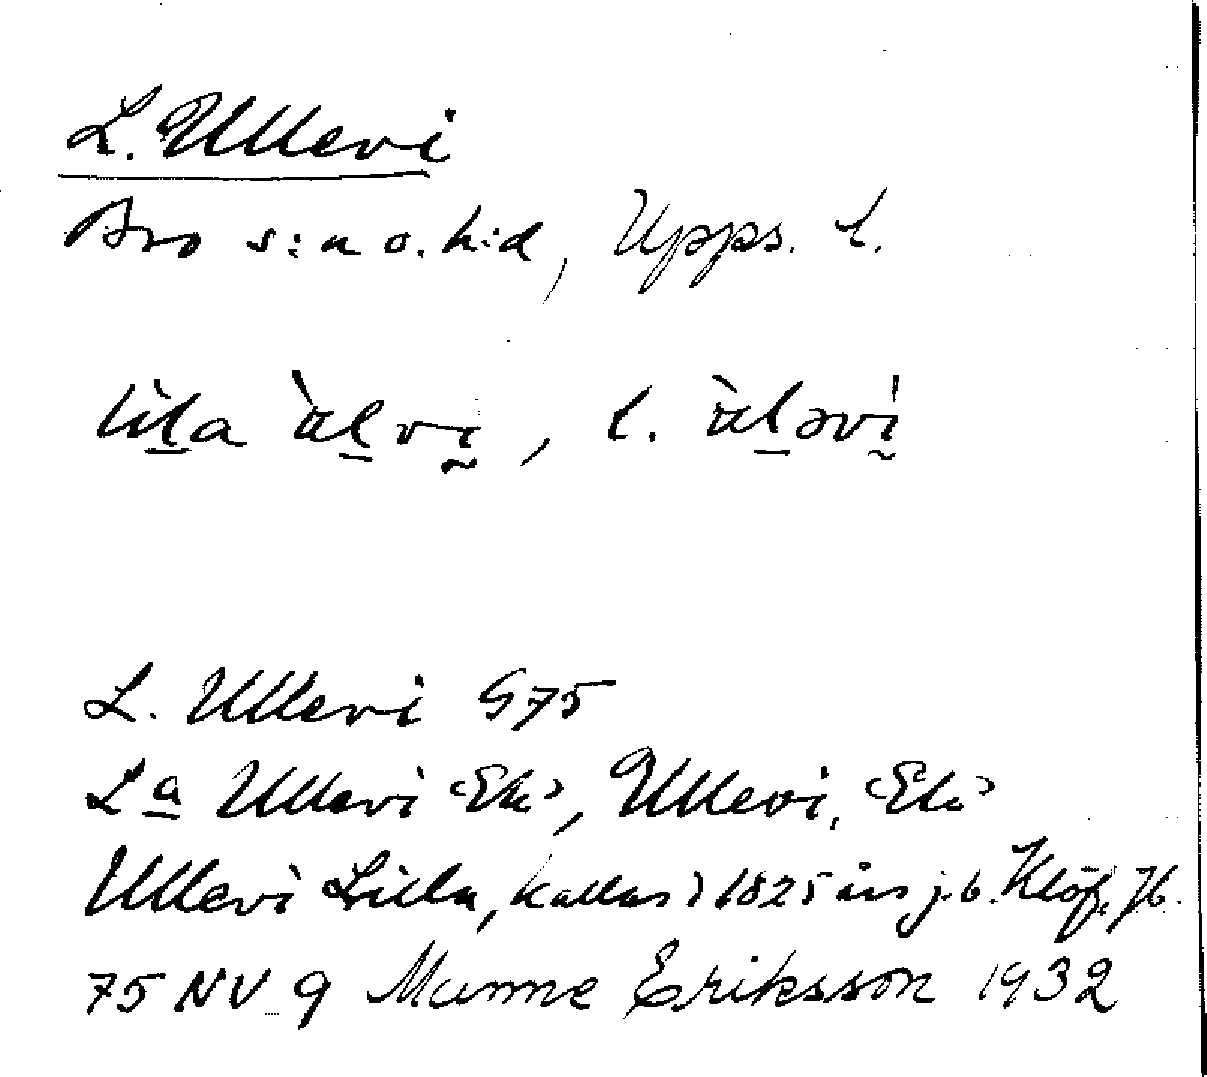 L. Ullevi
Bro s:n o. h:d, Upps. l.
lila ùlvi, l. ùləvi
L. Ullevi G75
La Ullevi Ek, Ullevi, Ek
Ullevi Lilla, kallas i 1825 års j.b. Klöf, Jb.
75 NV 9 Manne Eriksson 1932